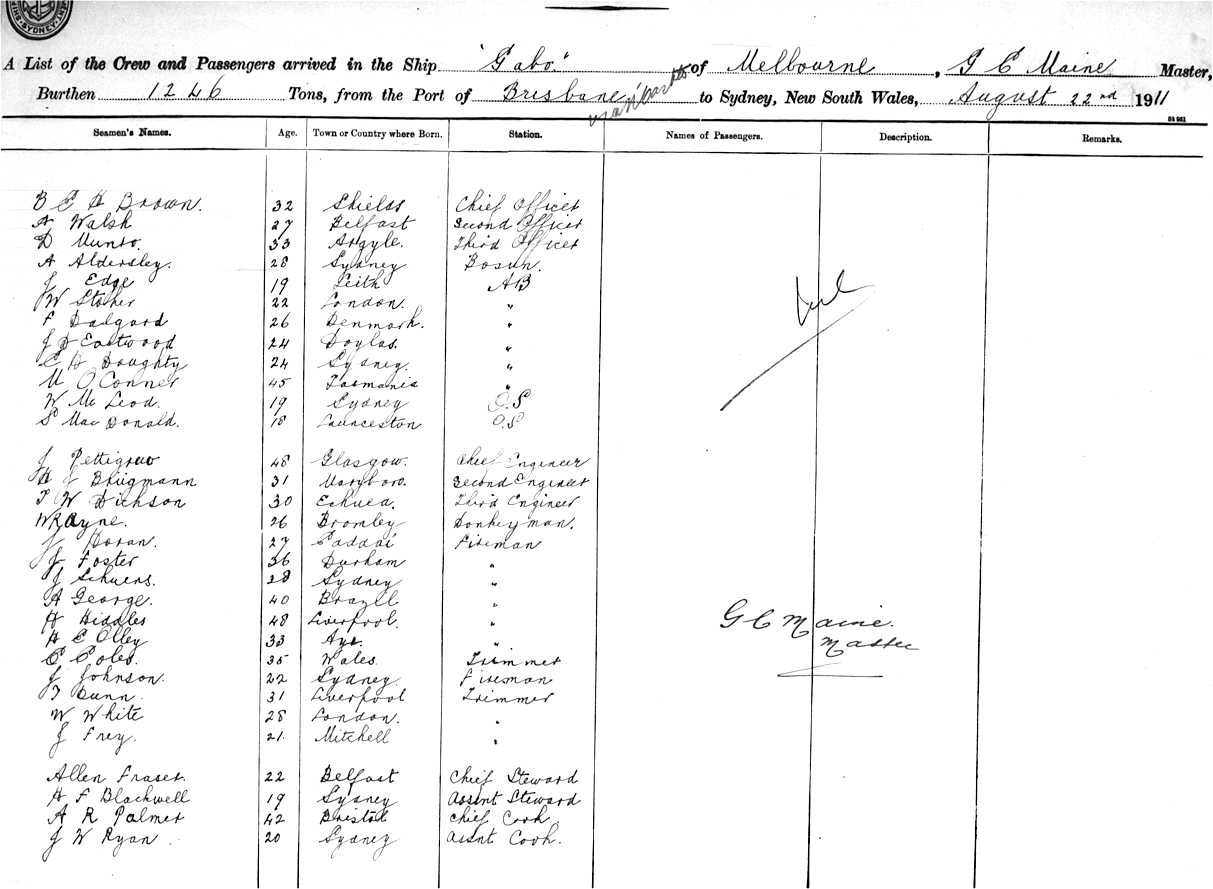 SYDNEY
A List of the Crew and Passengers arrived in the Ship "Gabo." of Melbourne, G C Maine Master,
Burthen 1246 Tons, from the Port of Brisbane to Sydney, New South Wales, August 22nd 1911
Seamen's Names. Age. Town or Country where Born. Station. Names of Passengers. Description. Remarks.
B E H Brown. 32 Shields Chief Officer
A Walsh 27 Belfast Second Officer
D Munro. 33 Argyle. Third Officer
A Aldersley. 28 Sydney Bosun.
J Edge 19 Leith AB
W Stoker 22 London. "
F Dalgard 26 Denmark. "
J D Eastwood 24 "
C H Doughty 24 Sydney. "
M O'Conner 45 Tasmania "
W McLeod. 19 Sydney O.S
S MacDonald. 18 Launceston O.S
J Pettigrew 48 Glasgow. Chief Engineer
H J Brugmann 31 Maryboro. Second Engineer
T W Dickson 30 Echuca. Third Engineer
W R Ayne. 26 Bromley Donkeyman.
J Horan. 27 Fireman
J Foster 36 Durham "
J Schuers. 28 Sydney "
A George. 40 Brazil "
H Hiddles 48 Liverpool. "
H E Olley 33 Ayr. "
C Coles. 35 Wales. Trimmer
J Johnson. 22 Sydney. Fireman
T Dunn. 31 Liverpool Trimmer
W White 28 London. "
J Frey. 21. Mitchell "
G C Maine.
Master
Allen Fraser. 22 Belfast Chief Steward
H F Blackwell 19 Sydney Assnt Steward
A R Palmer 42 Bristol Chief Cook
J W Ryan 20 Sydney Assnt Cook.